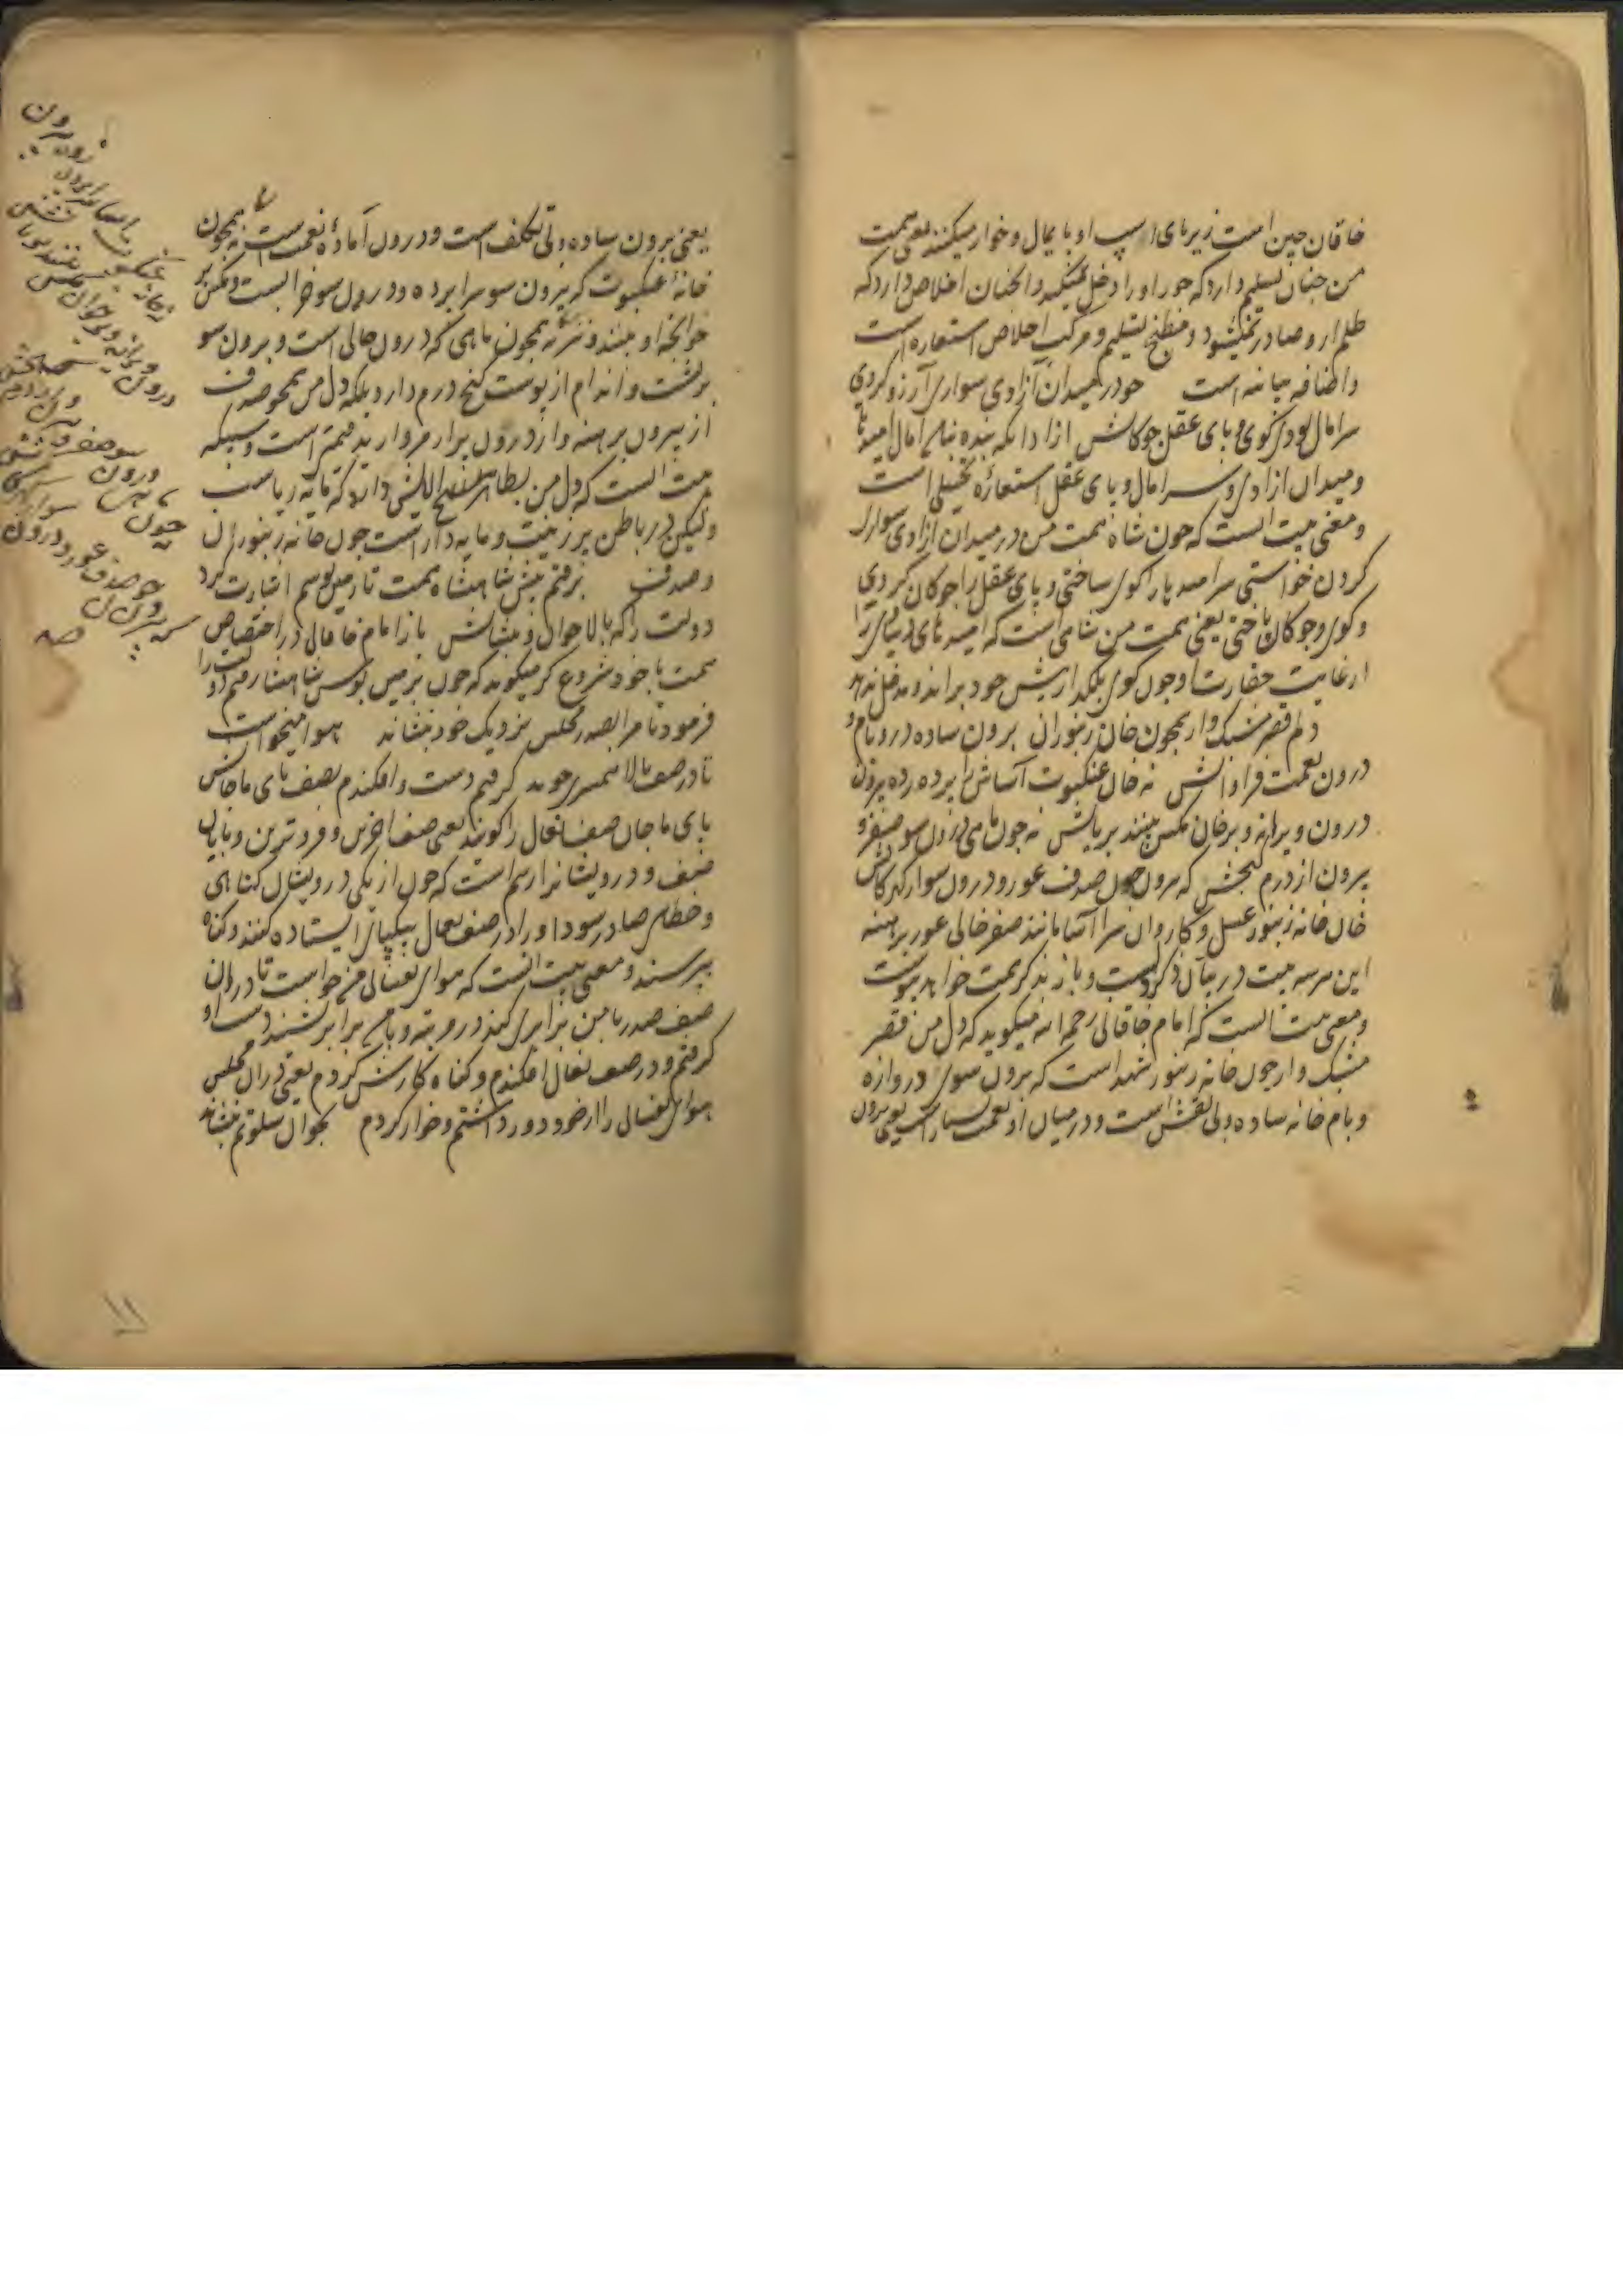 خاقان چین است زیر پای اسپ او پایمال و خوار میکنند یعنی همت
من چنان تسلیم دارد که جور او را دخل نمیکند وانچنان اخلاص دارد که
ظلم ازو صادر نمیشود و مطبخ تسلیم و مرکب اخلاص استعاره است
و اضافه بیانیه است خود در میدان آزادی سواری آرزو کردی
سر آمال بودی کوی و پای عقل چوکانش
و میدان ازادی و سر امال و پای عقل استعارهٔ تخییلی است
و معنی بیت انست که چون شاه همت من در میدان ازادی سواری
کردن خواستی سر امید را کوی ساختی و پای عقل را چوکان کردی
و کوی و چوکان باختی یعنی همت من شاهی است که امید های دنیائی را
از غایت حقارت او چون کوی بلکد از پیش خود براند و مدخل ندهد
دلم قصر مشبک وار همچون خان زنبوران برون ساده در و بام و
درون نعمت فراوانش نه خان عنکبوت آسا سرا پرده زده بیرون
درون ویرانه و بر خان مکس بینند بریانش نه چون ماهی درون سو صفر و
بیرون از درم کنجش که برون چون صدف عور و درون سو از کهر کانش
خان خانه زنبور عسل و کاروان سرا آسا مانند صفر خالی عور برهنه
این هر سه بیت در بیان ذکر دلست و باز بذکر همت خواهد پیوست
و معنی بیت انست که امام خاقانی رحمه الله میکوید که دل من قصر
مشبک وار چون خانه زنبور شهد است که برون سوی دروازه
و بام خانه ساده و بی نقش است و در میان او نعمت بسیار است یعنی برون
یعنی برون ساده و بی تکلف است و درون آمادهٔ نعمت است نه همچون
خانهٔ عنکبوت که بیرون سو سرا پرده و درون سو خرابست و مکس بر
خوانچه او بینند و نیز نه همچون ماهی که درون خالی است و برون سو
بر پشت و اندام از پوست کنج درم دارد بلکه دل من همچو صدف
از بیرون برهنه و از درون پر از مروارید قیمتی است
بیت انست که دل من بظاهر
ولیکن در باطن پر زینت و مایه دار است چون خانه زنبوران
و صدف برفتم پیش شاهنشاه همت تا زمین بوسم اشارت کرد
دولت را که بالا خوان و بنشانش باز امام خاقانی در اختصاص
همت با خود شروع کرد میکوید که چون بزمین بوس شاهنشاه رفتم دولت را
فرمود تا مرا بصدر مجلس نزدیک خود بنشاند هوا میخواست
تا در صف بالا همسری جوید کرفتم دست و افکندم بصف پای ماجانش
پای ماجان صف نعال را کویند یعنی صف آخرین و فروترین و پایان
صف و درویشانرا رسم است که چون از یکی درویشان کناهی
و خطائی صادر شود او را در صف نعال بیکپای ایستاده کنند و کناه
بپرسند و معنی بیت انست که هوای نفسانی من خواست تا در ان
صف صدر با من برابری کند و در رتبه و پایه برابر نشیند دست او
کرفتم و در صف نعال افکندم و کناه کارش کردم یعنی در ان مجلس
هوای نفسانی را از خود دور داشتم و خوار کردم بخوان سلوتم بنشاند
نه خانه عنکبوت آسا سرا پرده زده بیرون
درون ویرانه و بر خوان مکس بینند بریانش
نه چون ماهی درون سو صفر و بیرون از درم کنجش
که بیرون چون صدف عور و درون سو از کهر کانش
۱۱